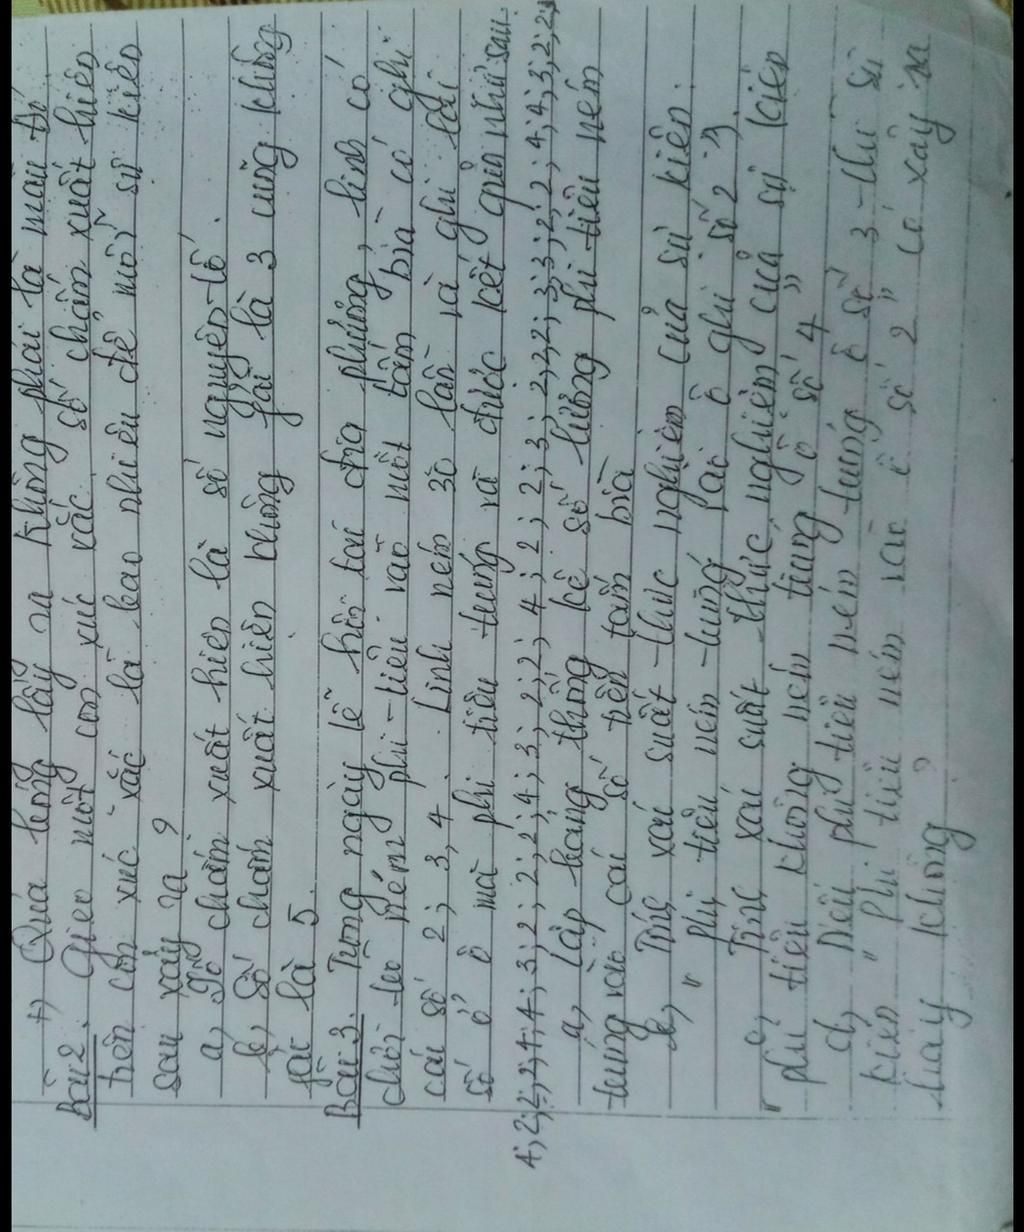 +) Quả bóng lấy ra không phải là màu đỏ
Bài 2. Gieo một con xúc xắc số chấm xuất hiện
trên con xúc xắc là bao nhiêu để mỗi sự kiện
sau xảy ra ?
a, Số chấm xuất hiện là số nguyên tố.
b, Số chấm xuất hiện không phải là 3 cũng không
phải là 5.
Bài 3. Trong ngày lễ hội tại địa phương, Linh có
chơi trò ném phi tiêu vào một tấm bìa có ghi
các số 2; 3, 4. Linh ném 30 lần và ghi lại
số ở ô mà phi tiêu trúng và được kết quả như sau.
4; 2; 2; 2; 4; 4; 3; 2; 2; 2; 4; 3; 2; 2; 4; 2; 2; 3; 2; 2; 2; 3; 3; 2; 2; 4; 4; 3; 2; 2;
a, Lập bảng thống kê số lượng phi tiêu ném
trúng vào các số trên tấm bìa
b, Tính xác suất thực nghiệm của sự kiện.
" phi tiêu ném trúng vào ô ghi số 2 "
c, Tính xác suất thực nghiệm của sự kiện
phi tiêu không ném trúng ô số 4 "
d, Nếu phi tiêu ném trúng ô số 3 thì sự
kiện " phi tiêu ném vào ô số 2 " có xảy ra
hay không ?